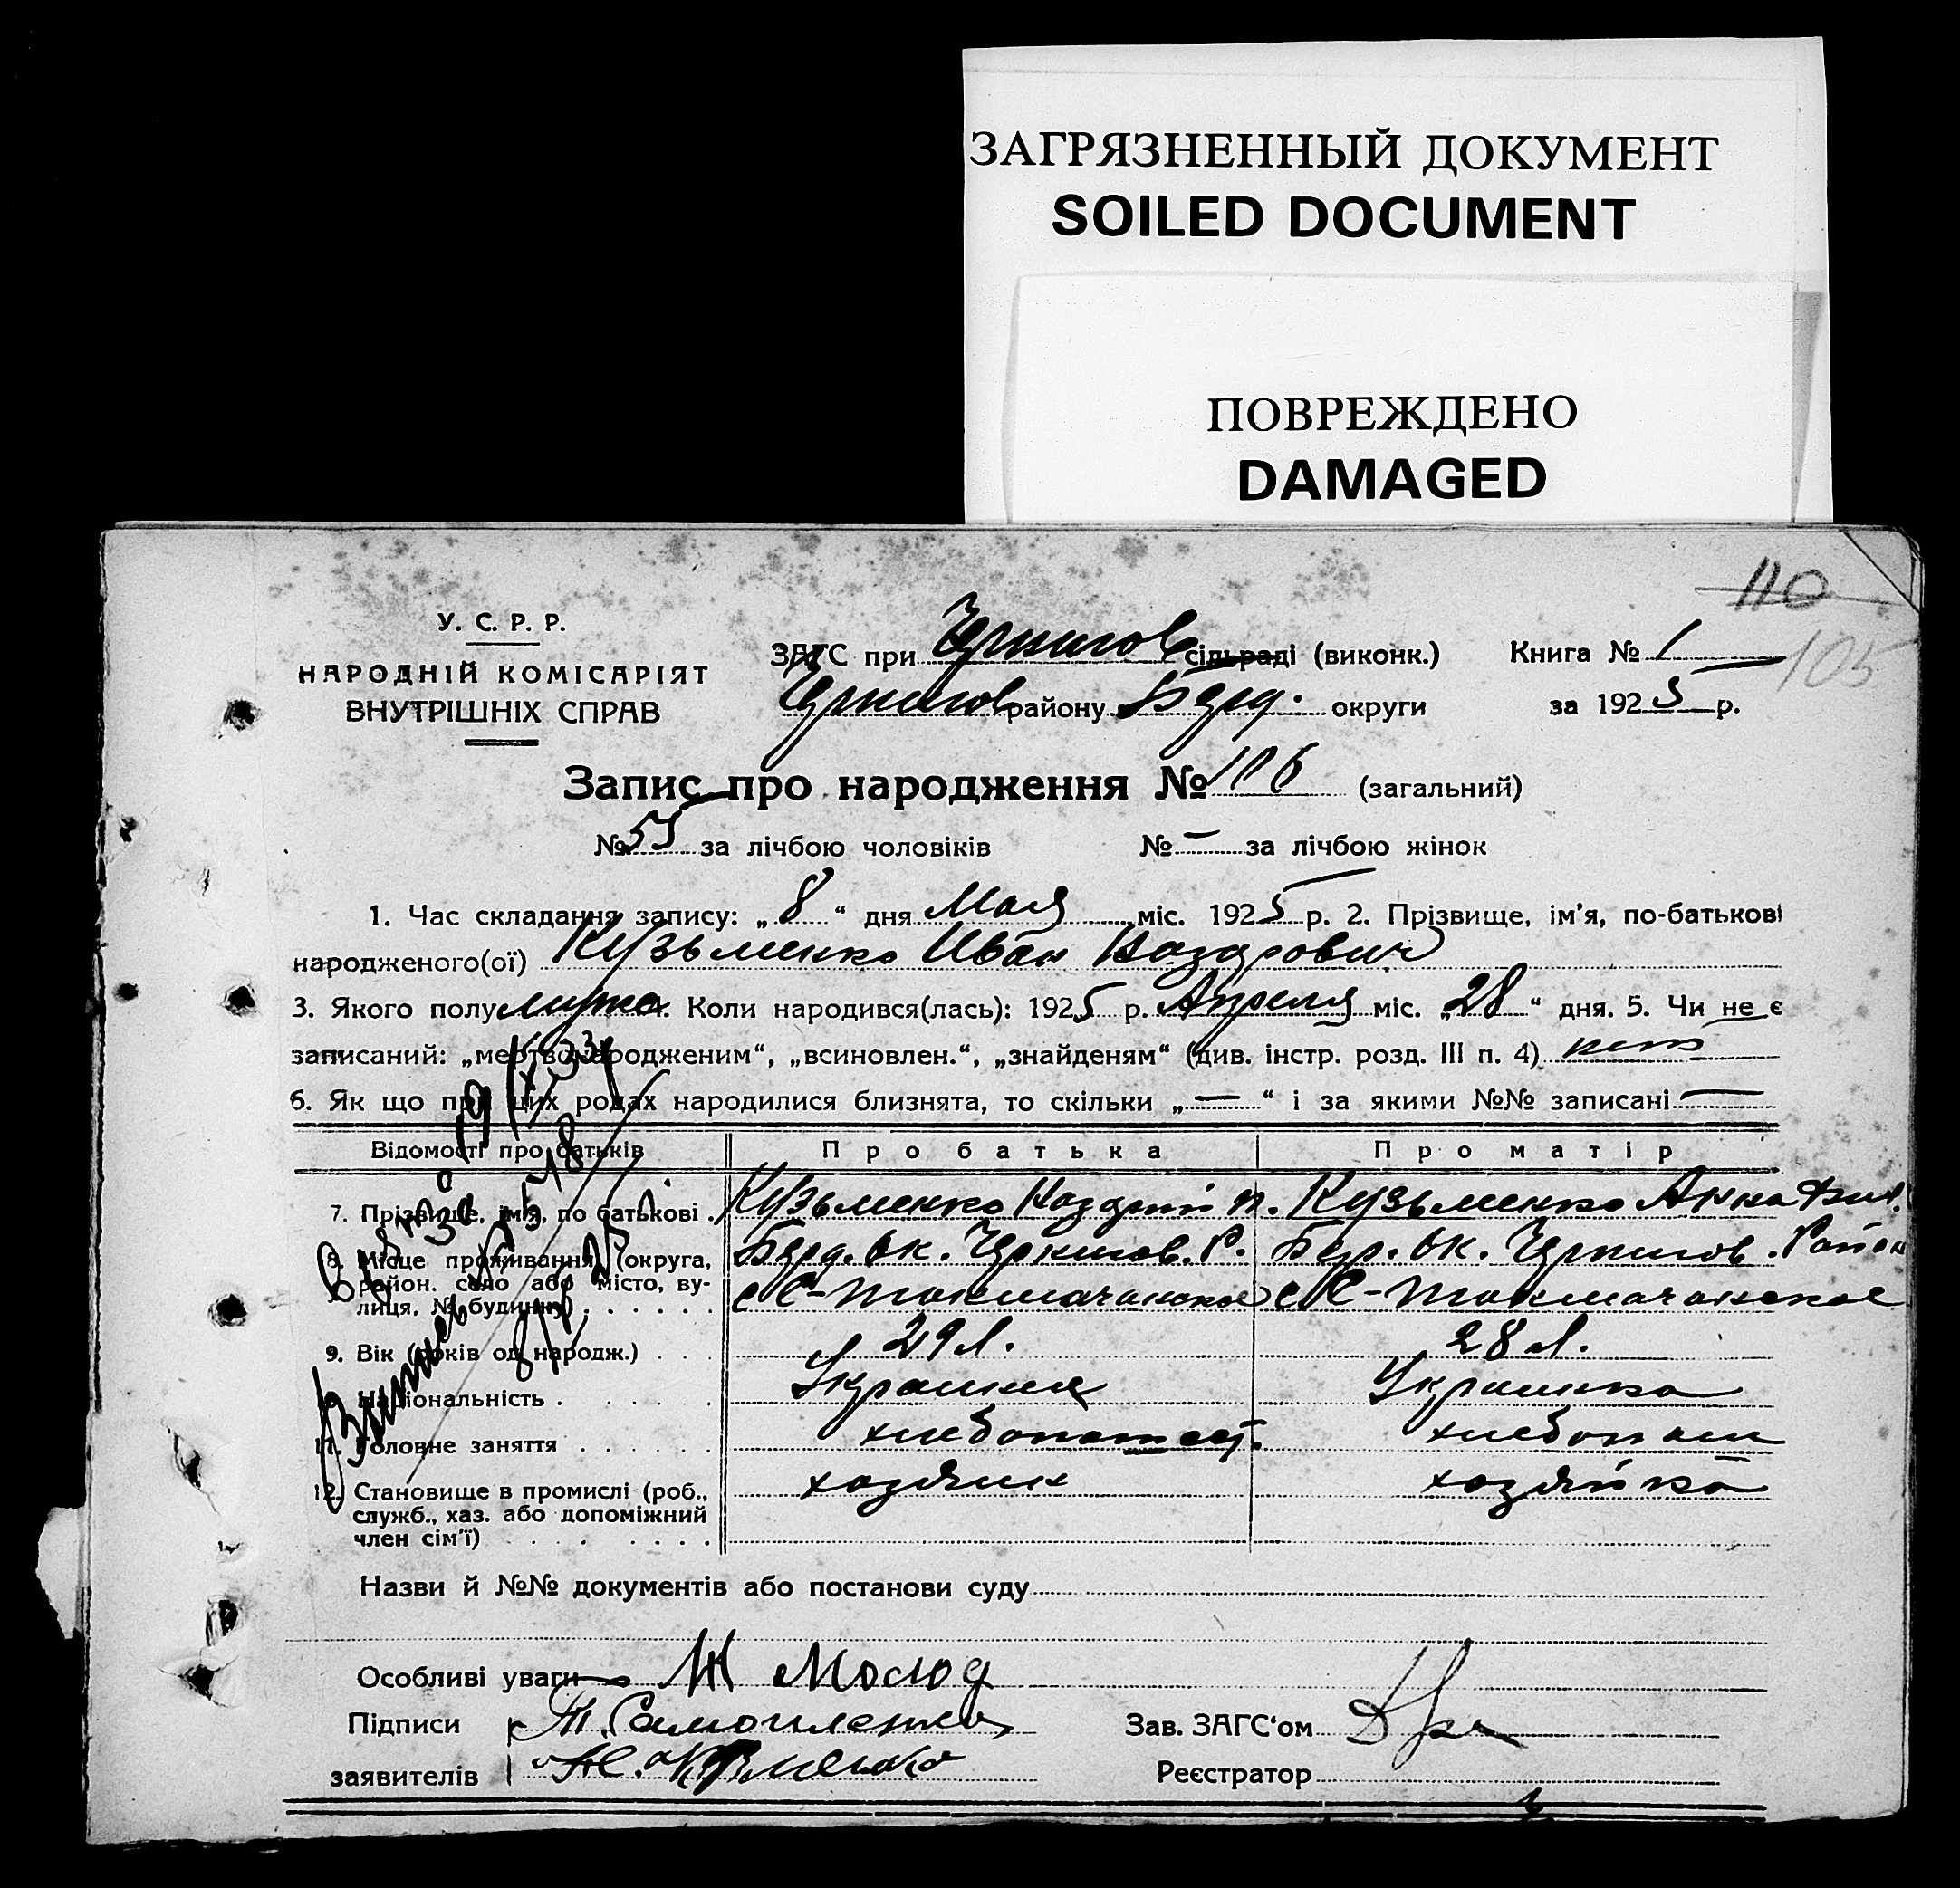 ЗАГРЯЗНЕННЫЙ ДОКУМЕНТ
SOILED DOCUMENT
ПОВРЕЖДЕНО
DAMAGED
110
105
У. С. Р. Р.
НАРОДНІЙ КОМІСАРІЯТ
ВНУТРІШНІХ СПРАВ
ЗАГС при Чернигов сільраді (виконк.) Книга № 1
Чернигов району Берд. округи за 1925 р.
Запис про народження № 106 (загальний)
№ 55 за лічбою чоловіків № — за лічбою жінок
1. Час складання запису: „8“ дня Мая міс. 1925 р. 2. Прізвище, ім'я, по-батькові
народженого(ої) Кузьменко Иван
3. Якого полу мужс. Коли народився(лась): 1925 р. Апреля міс. „28“ дня. 5. Чи не є
записаний: „мертвонародженим“, „всиновлен.“, „знайденям“ (див. інстр. розд. III п. 4) нет
6. Як що при цих родах народилися близнята, то скільки „—“ і за якими №№ записані —
Відомості про батьків Про батька Про матір
7. Прізвище, імя, по батькові . Кузьменко Кузьменко Анна
8. Місце проживання (округа, Берд. ок. Чернигов. Р. Бер. ок. Чернигов. Район
район. село або місто, ву-
лиця, № будинку) . . . . . . с С-Токмачанское с С-Токмачанское
9. Вік (років од народж.) . . . 29 л. 28 л.
10. Національність . . . . . Украинец Украинка
11. Головне заняття . . . . . . хлебопаш
12. Становище в промислі (роб., хозяин хозяйка
служб., хаз. або допоміжний
член сім'ї) . . . . . . . .
Назви й №№ документів або постанови суду
Особливі уваги
Підписи Т. Самойленко Зав. ЗАГС'ом
заявителів Реєстратор